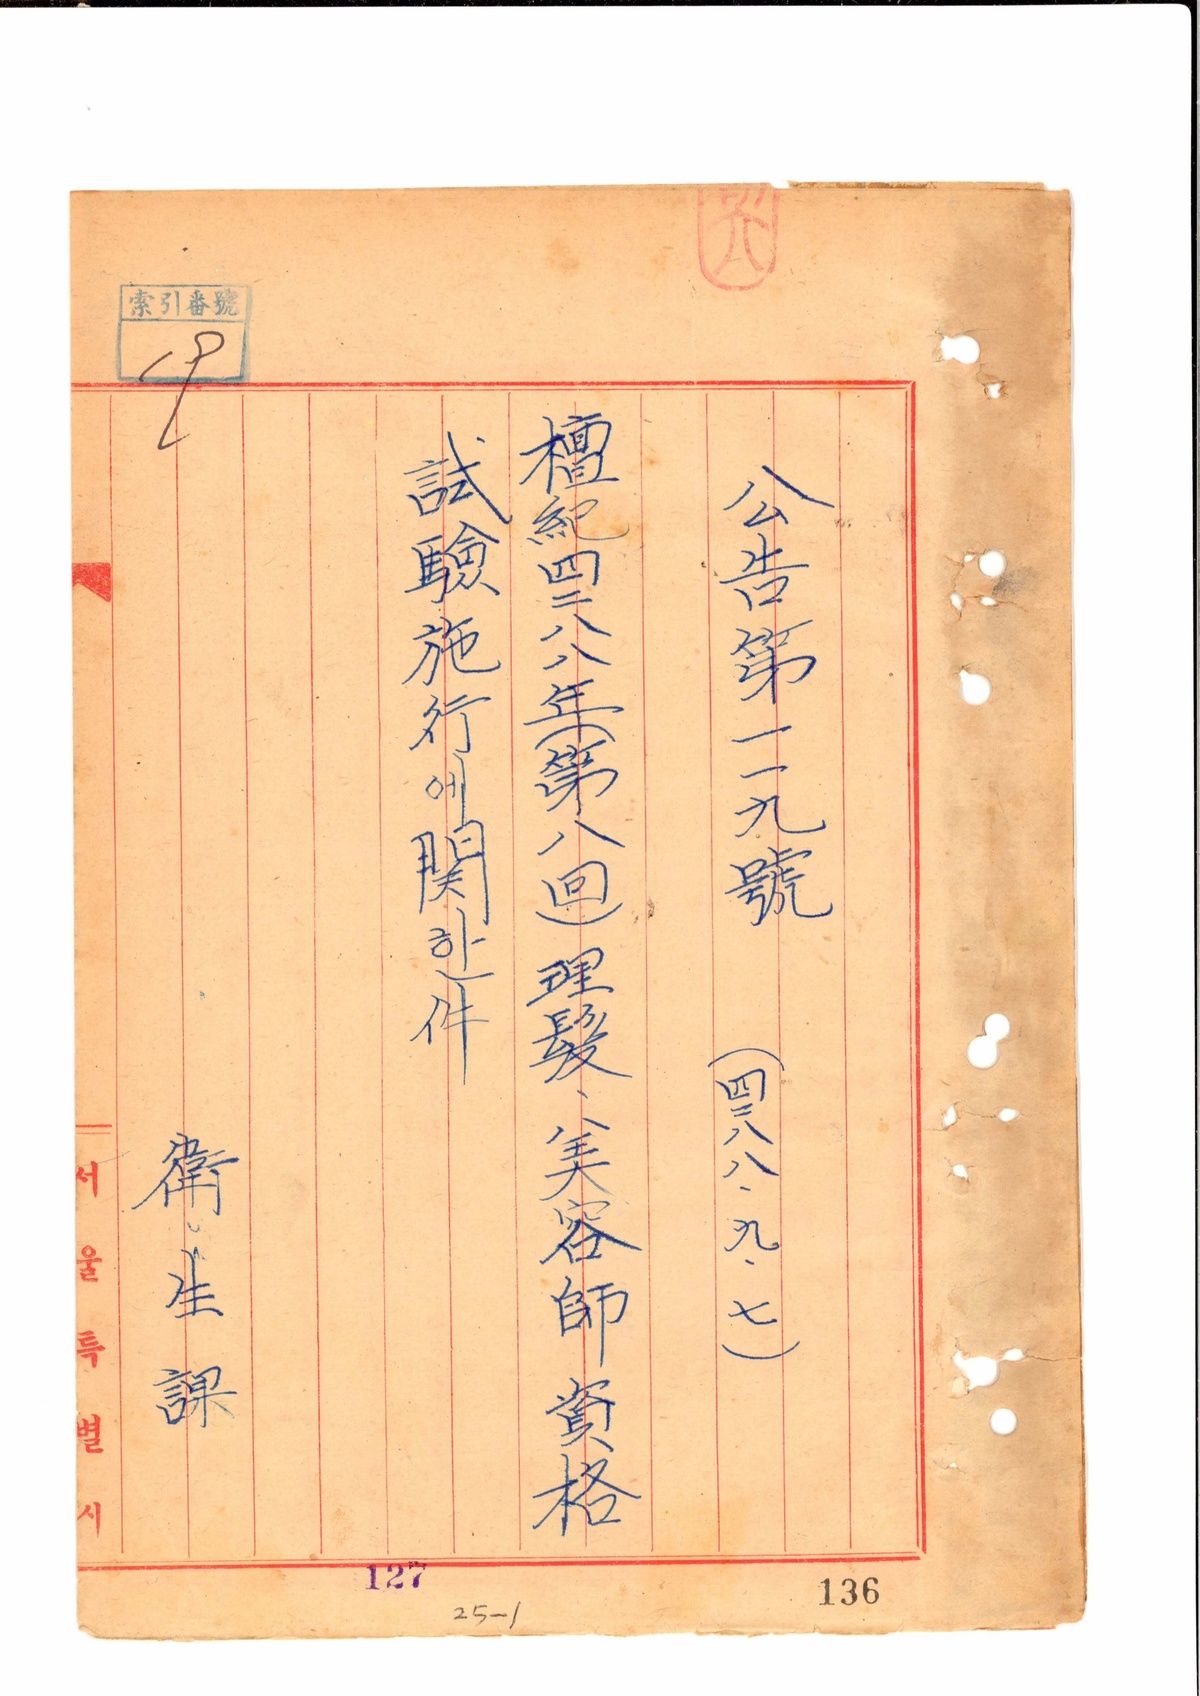 公告第一一九號 (四二八八、九、七)
檀紀四二八八年(第八回)理髮、美容師資格
試驗施行에関한件
衛生課
索引番號
서울특별시
127
136
25-1